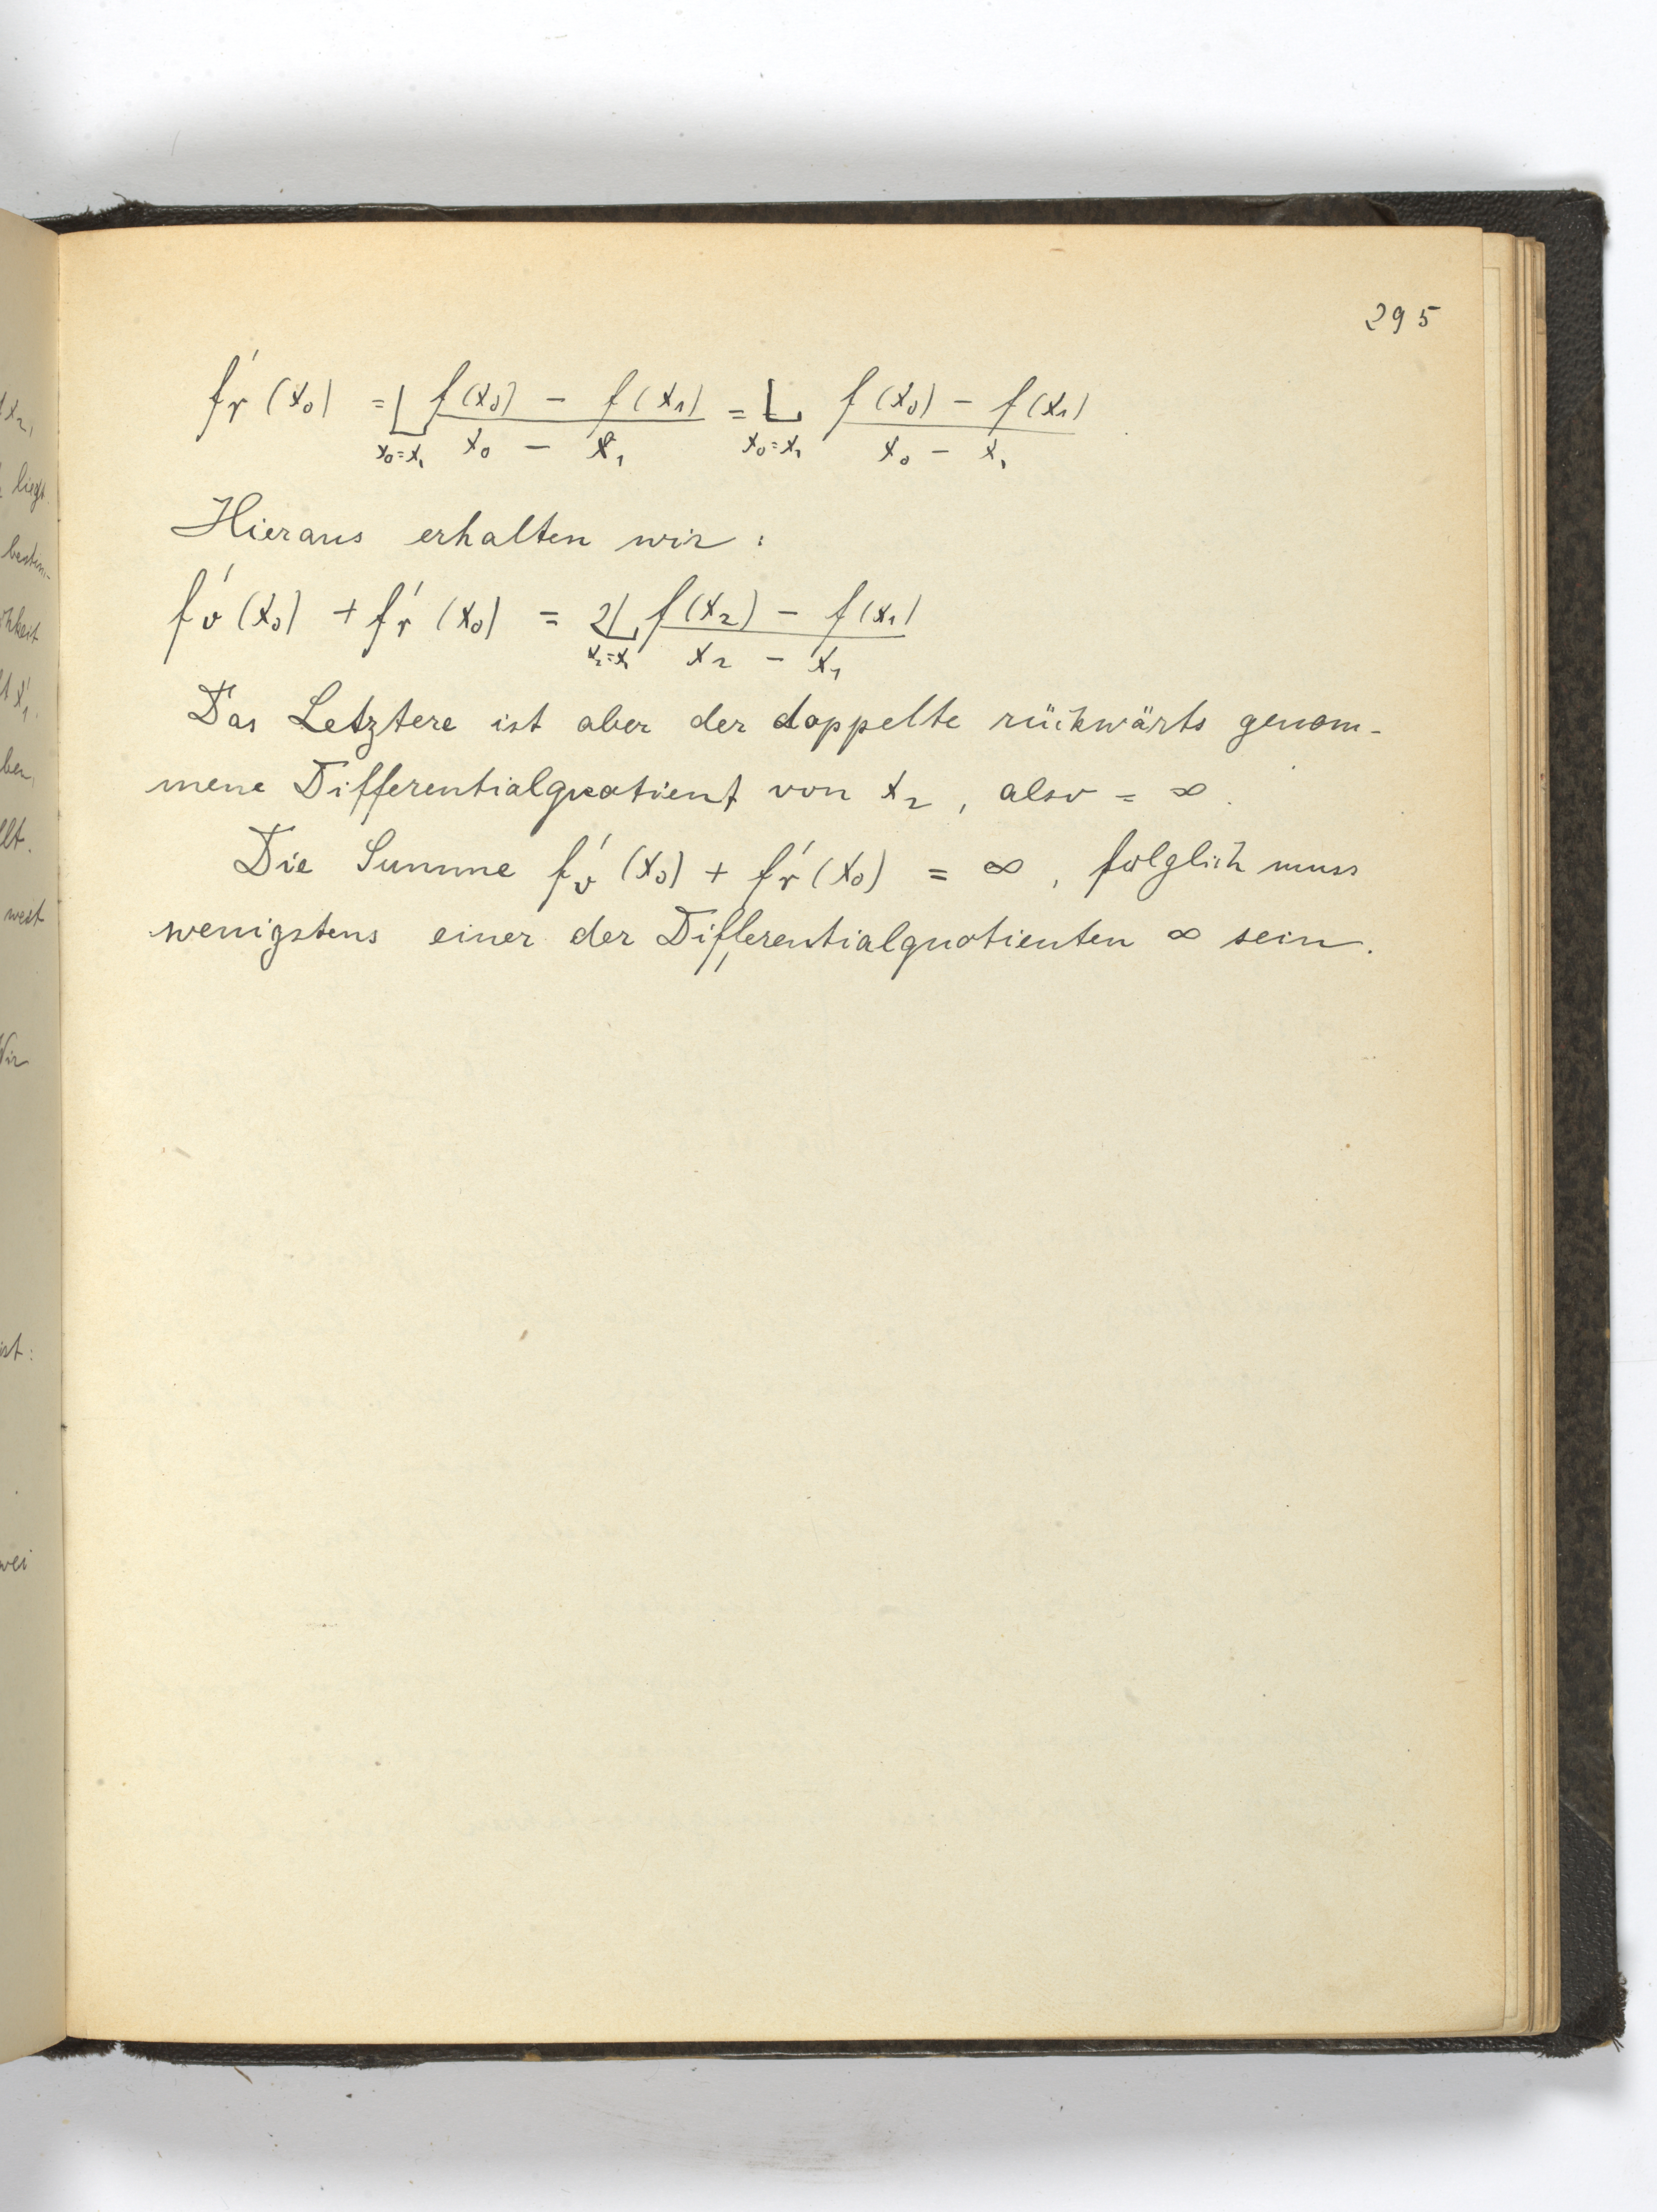 295
f'r (x0) = L x0=x1 f(x0) - f(x1) / x0 - x1 = L x0=x1 f(x0) - f(x1) / x0 - x1
Hieraus erhalten wir :
f'v (x0) + f'r (x0) = 2 L x2=x1 f(x2) - f(x1) / x2 - x1
Das Letztere ist aber der doppelte rückwärts genom-
mene Differentialquotient von x2 , also = ∞ .
Die Summe f'v (x0) + f'r (x0) = ∞ , folglich muss
wenigstens einer der Differentialquotienten ∞ sein.
x2,
liegt.
bestim-
ben,
weit
Wir
ist: